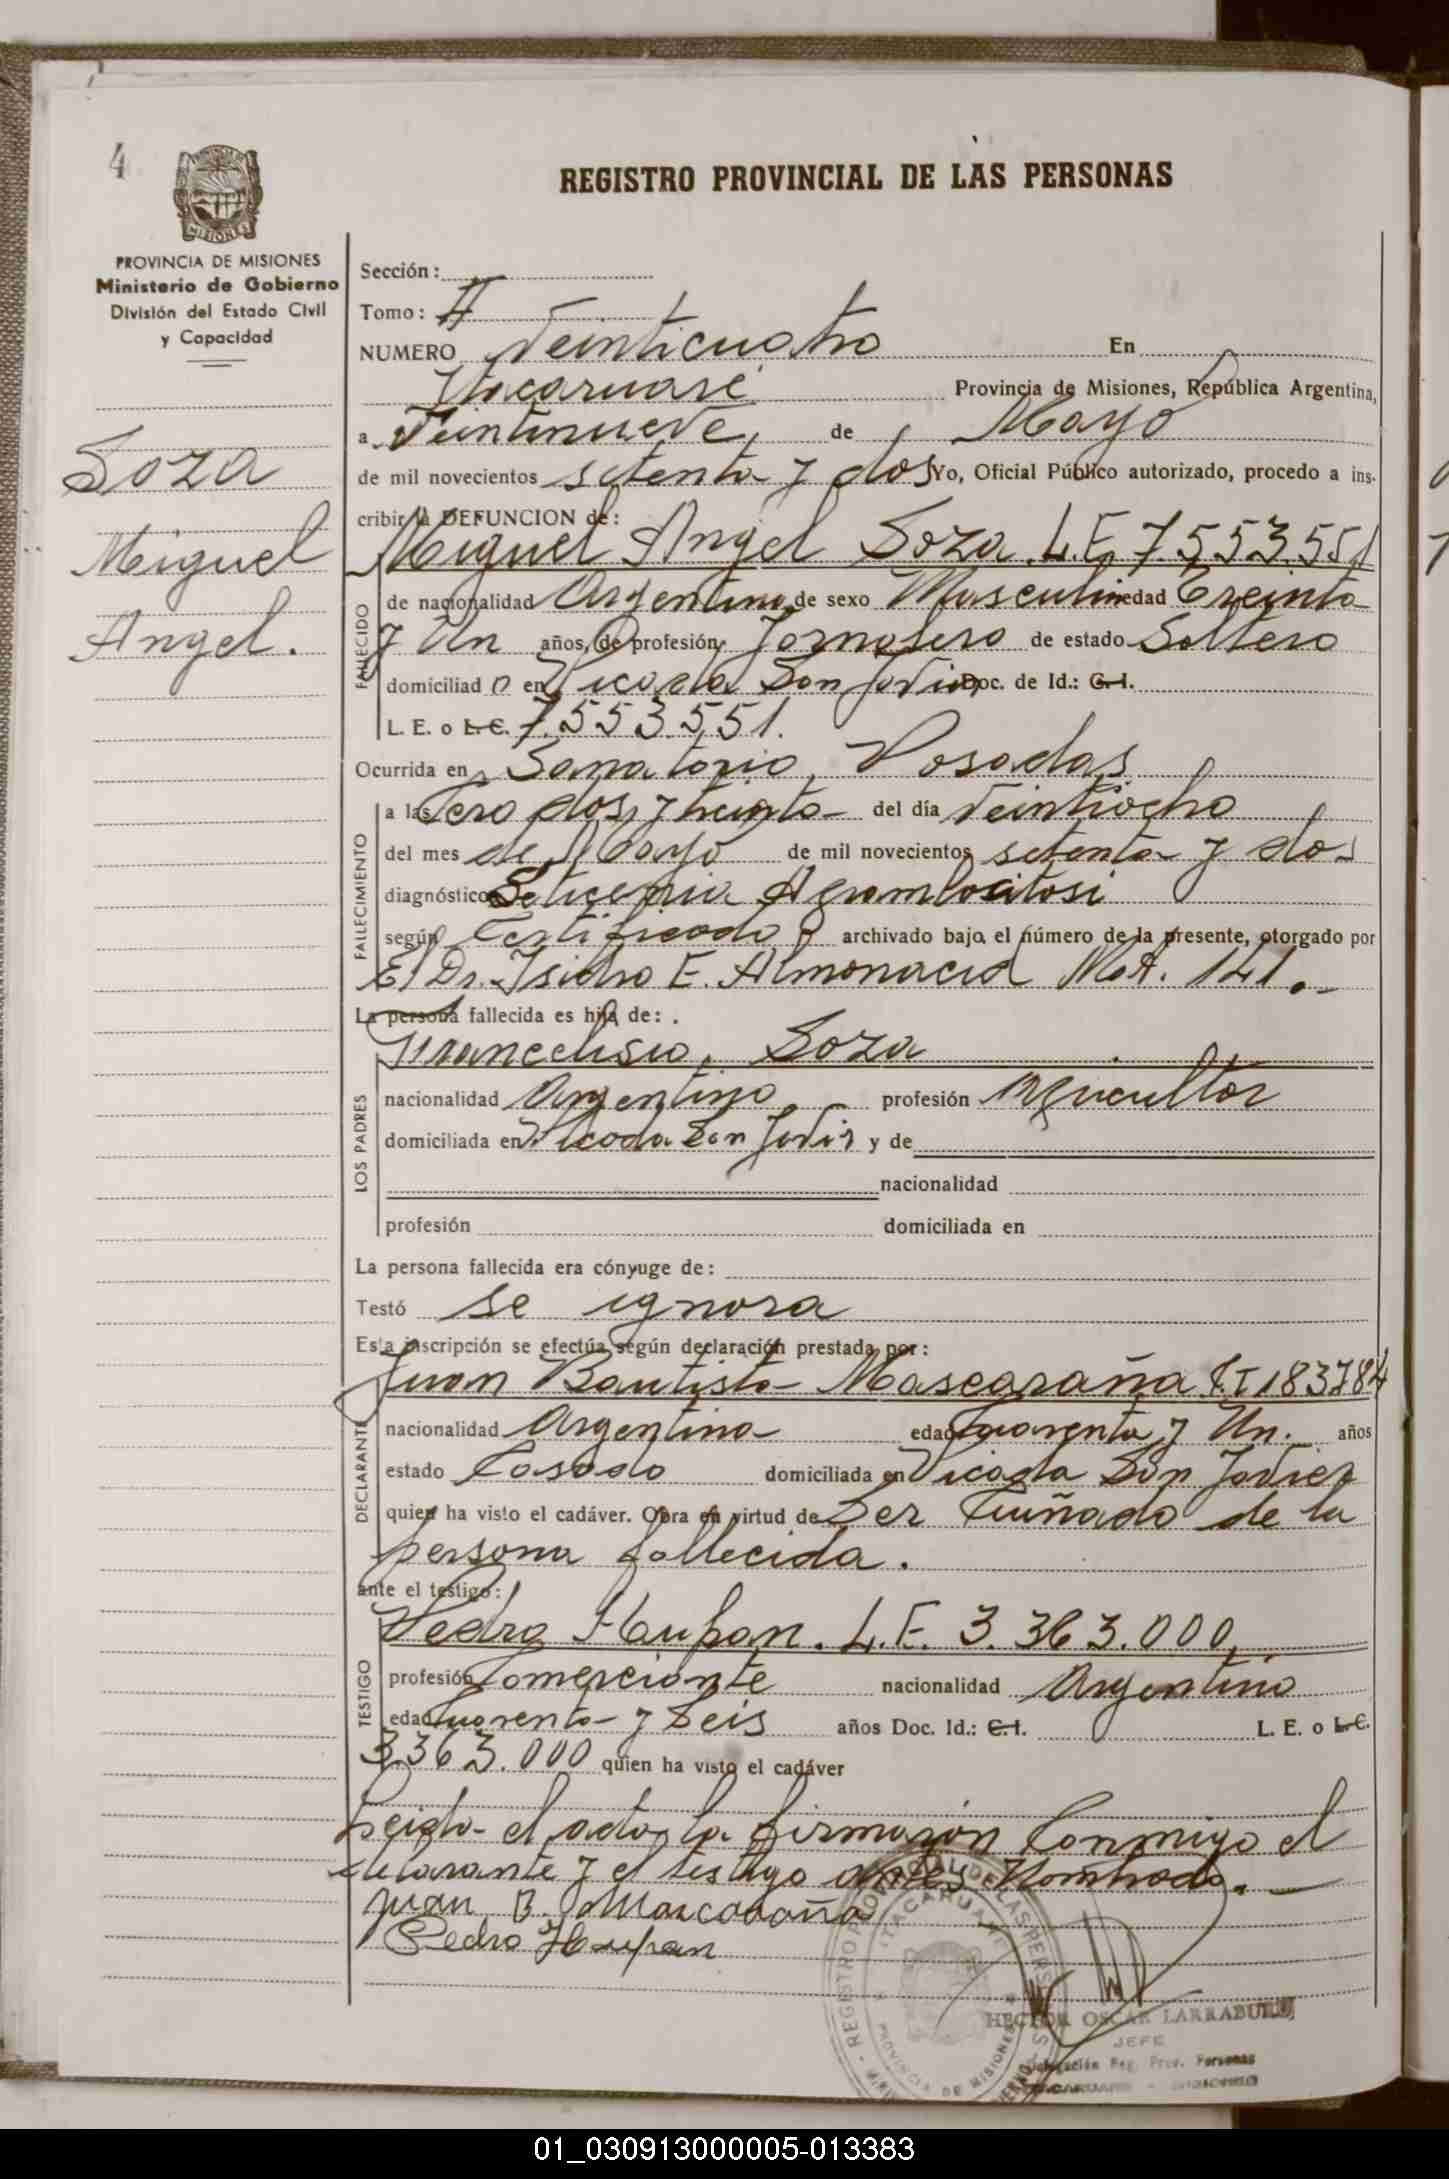 4
REGISTRO PROVINCIAL DE LAS PERSONAS
PROVINCIA DE MISIONES
Ministerio de Gobierno
División del Estado Civil
y Capacidad
Soza
Miguel
Angel.
Sección:
Tomo:
NUMERO Veinticuatro En
Itacaruaré Provincia de Misiones, República Argentina,
a Veintinueve, de Mayo
de mil novecientos setenta y dos Yo, Oficial Público autorizado, procedo a ins-
cribir la DEFUNCION de:
Miguel Angel Soza. L.E. 7.553.551
FALLECIDO
de nacionalidad Argentina de sexo Masculino edad Treinta
y Un años, de profesión Jornalero de estado Soltero
domiciliad o en Picada San Javier Doc. de Id.: C. I.
L. E. o L. C. 7.553.551.
Ocurrida en Sanatorio, Posadas
FALLECIMIENTO
a las Cero dos y treinta del día Veintiocho
del mes de Mayo de mil novecientos setenta y dos
diagnóstico
según Certificado archivado bajo el número de la presente, otorgado por
El Dr. Isidro E. Almonacid Mat. 141.-
La persona fallecida es hija de:
Soza
LOS PADRES
nacionalidad Argentino profesión Agricultor
domiciliada en Picada San Javier y de
nacionalidad
profesión domiciliada en
La persona fallecida era cónyuge de:
Testó se ignora
Esta inscripción se efectúa según declaración prestada por:
Juan Bautista Mascaraña 183784
DECLARANTE
nacionalidad Argentina edad Cuarenta y Un. años
estado Casado domiciliada en Picada San Javier
quien ha visto el cadáver. Obra en virtud de Ser Cuñado de la
persona fallecida.
ante el testigo:
Pedro Haupan. L.E. 3.363.000
TESTIGO
profesión Comerciante nacionalidad Argentino
edad Cuarenta y Seis años Doc. Id.: C. I. L. E. o L. C.
3.363.000 quien ha visto el cadáver
Leida el acta, la firmaron Conmigo el
declarante y el testigo antes Nombrado.
Juan B. Mascaraña
Pedro Haupan
REGISTRO PROVINCIAL DE LAS PERSONAS
ITACARUARE
PROVINCIA DE MISIONES
HECTOR OSCAR LARRABURU
JEFE
Delegación Reg. Prov. Personas
ITACARUARE - MISIONES
01_030913000005-013383